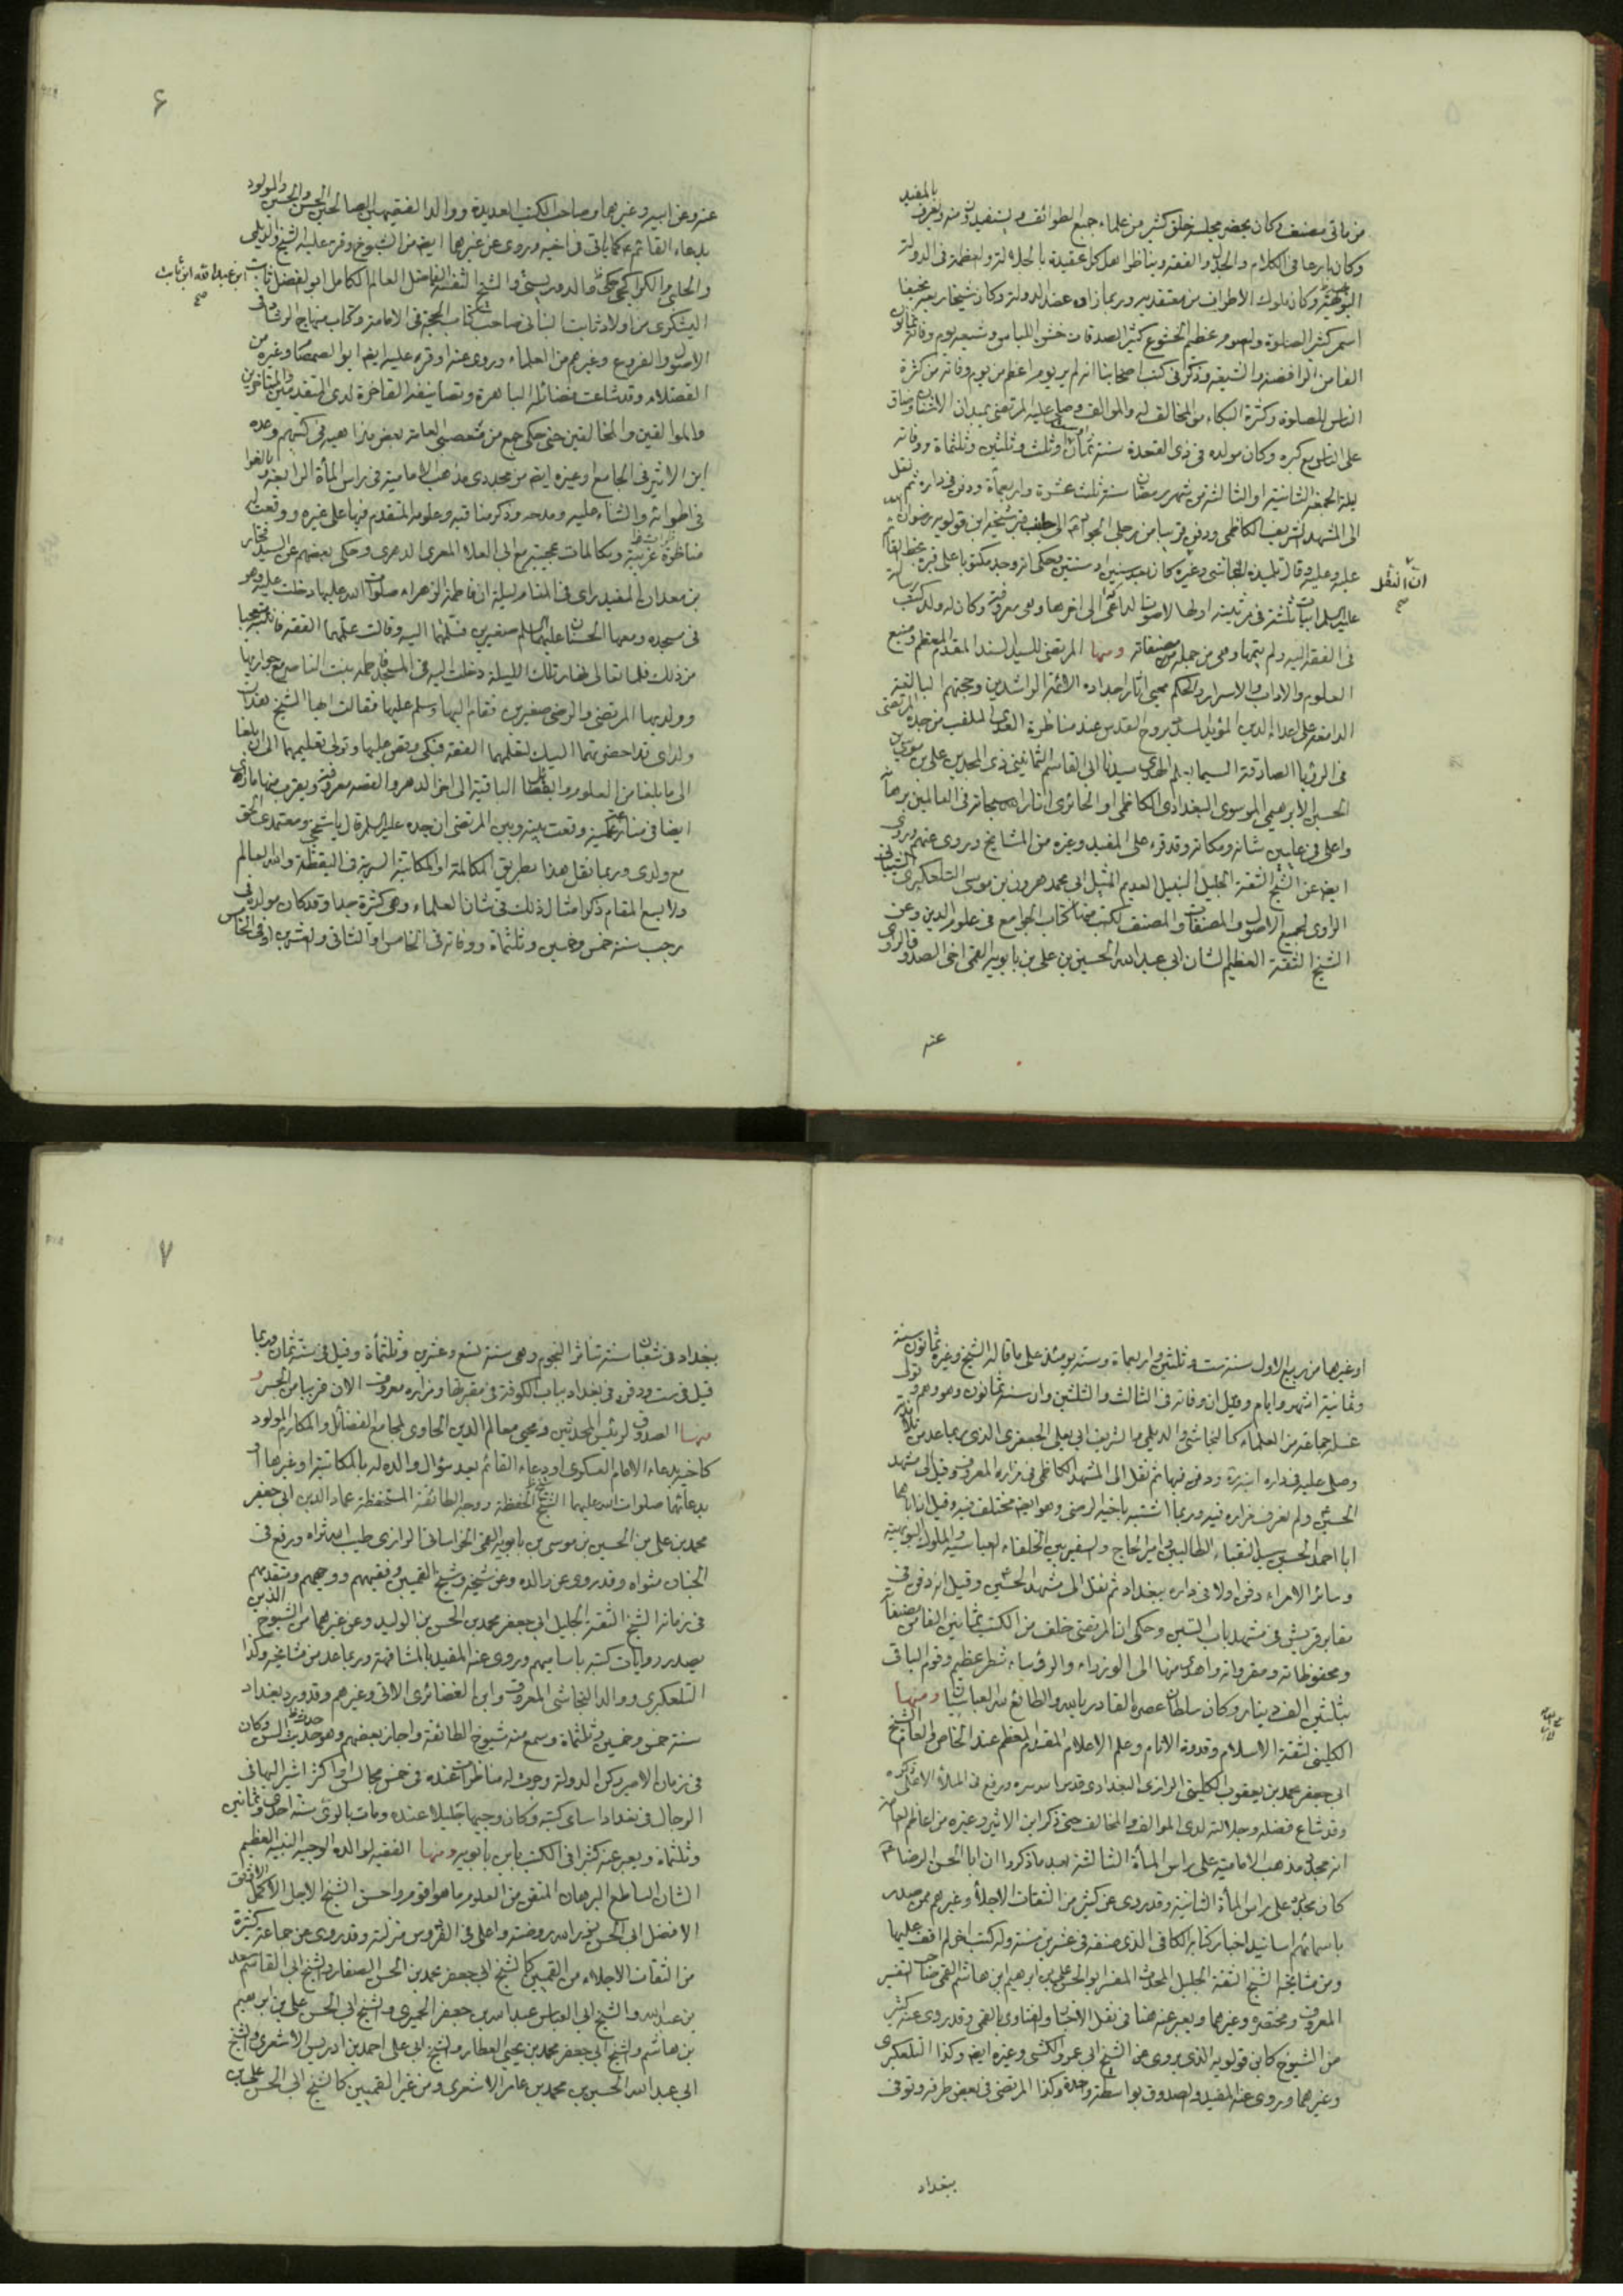 من مائتي مصنف وكان يحضر مجلسه خلق كثير من علماء جميع الطوائف ويستفيدون منه ويعرف بالمفيد
وكان بارعا في الكلام والجدل والفقه ويناظر اهل كل عقيدة بالجلالة والعظمة في الدولة
البويهية وكان ملوك الاطراف من معتقديه وربما زاره عضد الدولة وكان شيخا ربعة نحيفا
اسمر كثير الصلوة والصوم عظيم الخشوع كثير الصدقات خشن اللباس وشيعه يوم وفاته ثمانون
الفا من الرافضة والشيعة وذكر في كتب اصحابنا انه لم ير يوم اعظم من يوم وفاته من كثرة
الناس للصلوة وكثرة البكاء من المخالف له والموالف وصلى عليه المرتضى بميدان الاشنان وضاق
على الناس مع كبره وكان مولده في ذي القعدة سنة ثمان او ست او ثلث وثلثين وثلثماة ووفاته
ليلة الجمعة الثانية او الثالثة من شهر رمضان سنة ثلث عشرة واربعمأة ودفن في داره ثم نقل
الى المشهد الشريف الكاظمي ودفن قريبا من رجلي الجواد الى جانب قبر شيخه ابن قولويه رضوان الله
عليه وعليه وقال تلميذه النجاشي وغيره كان بعد سنين او سنتين وحكي انه وجد مكتوبا على قبره بخط القائم
ان النقل
صح
عليه السلم ابيات ثلثة في مرثيته اولها لاصوت الناعي الى اخرها وهي معروفة وكان له ولد كتب رسالة
في الفقه اليه ولم يتمها وهي من جملة مصنفاته ومنها المرتضى للسيد السند المقدم المعظم ومنبع
العلوم والاداب والاسرار والحكم محيي اثار اجداده الائمة الراشدين وحجتهم البالغة
الدامغة على اعداء الدين المؤيد المسدد بروح القدس عند مناظرة العدى الملقب من جده المرتضى
في الرؤيا الصادقة السيماء بعلم الهدى سيدنا ابي القاسم الثمانيني ذي المجدين علي بن
الحسين الابرهيمي الموسوي البغدادي الكاظمي او الحائري انار الله سبحانه في العالمين برهانه
واعلى في عليين شانه ومكانه وقد قرء على المفيد وغيره من المشايخ وروى عنهم وروى
ايضا عن الشيخ الثقة الجليل النبيل العديم المثيل ابي محمد هرون بن موسى التلعكبري الشيباني
الراوي لجميع الاصول والمصنفات والمصنف لكتب منها كتاب الجوامع في علوم الدين وعن
الشيخ الثقة العظيم الشان ابي عبد الله الحسين بن علي بن بابويه القمي اخي الصدوق الراوي
عنه
۶
عنه وعن ابيه وغيرهما وصاحب الكتب العديدة ووالد الفقيهين الصالحين الحسن والحسين والمولود
بدعاء القائم ع كما ياتي في اخيه وروى عن غيرها ايضا من الشيوخ وقرء عليه الشيخ والديلمي
والحلبي والكراجكي كما حكي والدوريستي والشيخ الثقة الفاضل العالم الكامل ابو الفضل ثابت
ابن عبد الله ابن ثابت
صح
اليشكري من اولاد ثابت البناني صاحب كتاب الحجة في الامامة وكتاب منهاج الرشاد في
الاصول والفروع وغيرهم من العلماء وروى عنه او قرء عليه ايضا ابو الصمصام وغيره من
الفضلاء وقد شاعت فضائله الباهرة وتصانيفه الفاخرة لدى المتقدمين والمتاخرين
والموالفين والمخالفين حتى حكى جمع من متعصبي العامة بعض مذاهبه في كتبهم وعده
ابن الاثير في الجامع او غيره ايضا من مجددي مذهب الامامية في راس المأة الرابعة وبالغوا
في اطرائه والثناء عليه ومدحه وذكر مناقبه وعلومه المتقدم فيها على غيره ووقعت له
مناظرة غريبة ومكالمات عجيبة مع ابي العلاء المعري الدهري وحكى بعضهم عن السيد فخار
بن معد ان المفيد راى في المنام ليلة ان فاطمة الزهراء صلوات الله عليها دخلت عليه وهو
في مسجده ومعها الحسنان عليهما السلم صغيرين فسلمتهما اليه وقالت علمهما الفقه فانتبه متعجبا
من ذلك فلما تعالى نهار تلك الليلة دخلت اليه في المسجد فاطمة بنت الناصر مع جواريها
وولديها المرتضى والرضي صغيرين فقام اليها وسلم عليها فقالت ايها الشيخ هذان
ولداي قد احضرتهما اليك لتعلمهما الفقه فبكى وقص عليها وتولى تعليمهما الى ان بلغا
الى ما بلغا من العلوم والفضائل الباقية الى اخر الدهر والقصة معروفة ويقرب منها ما روي
ايضا في منازعة علمية وقعت بينه وبين المرتضى ان جده عليه السلم قال يا شيخي ومعتمدي الحق
مع ولدي وربما نقل هذا بطريق المكالمة او المكاتبة السرية في اليقظة والله العالم
ولا يسع المقام ذكر امثال ذلك في شان العلماء وهي كثيرة جدا وقد كان مولده في
رجب سنة خمس وخمسين وثلثماة ووفاته في الخامس او الثاني والعشرين او في الخامس
او غيرها من ربيع الاول سنة ست وثلثين واربعماة وسنه يومئذ على ما قاله الشيخ وغيره ثمانون سنة
وثمانية اشهر وايام وقيل ان وفاته في الثالث والثلثين وان سنه ثمانون وهو وهم وتولى
غسله جماعة من العلماء كالنجاشي والديلمي والشريف ابي يعلى الجعفري الذي ربما عد من تلامذته
وصلى عليه في داره ابنه ودفن فيها ثم نقل الى المشهد الكاظمي في مزاره المعروف وقيل الى مشهد
الحسين ولم نعرف مزاره فيه وربما اشتبه باخيه الرضي وهو ايضا مختلف فيه وقيل ان اباهما
ابا احمد الحسين سيد النقباء الطالبيين وامير الحاج والسفير بين الخلفاء العباسية والملوك البويهية
وسائر الامراء دفن اولا في داره ببغداد ثم نقل الى مشهد الحسين وقيل انه دفن في
مقابر قريش في مشهد باب التبن وحكي ان المرتضى خلف من الكتب ثمانين الفا من مصنفاته
ومحفوظاته ومقرواته واهدى منها الى الوزراء والرؤساء شطر عظيم وقوم الباقي
بثلثين الف دينار وكان سلطان عصره القادر بالله والطائع لله العباسيان ومنها
الكليني لثقة الاسلام وقدوة الانام وعلم الاعلام المقدم المعظم عند الخاص والعام الشيخ
ابي جعفر محمد بن يعقوب الكليني الرازي البغدادي قدس الله سره ورفع في الملأ الاعلى ذكره
وقد شاع فضله وجلالته لدى الموالف والمخالف حتى ذكر ابن الاثير وغيره من اعاظم العامة
انه مجدد مذهب الامامية على راس المأة الثالثة بعد ما ذكروا ان ابا الحسن الرضا ع
كان مجدده على راس المأة الثانية وقد روى عن كثير من الثقات الاجلاء وغيرهم ممن صدر
باسمائهم اسانيد اخبار كتابه الكافي الذي صنفه في عشرين سنة وله كتب اخر لم اقف عليها
ومن مشايخه الشيخ الثقة الجليل المحدث المفسر ابو الحسن علي بن ابرهيم ابن هاشم القمي صاحب التفسير
المعروف ومختصره وغيرهما ويعبر عنه هنا في نقل الاخبار والفتاوى بالقمي وقد روى عنه كثير
من الشيوخ كابن قولويه الذي يروي عن الشيخ ابي عمرو الكشي وغيره ايضا وكذا التلعكبري
وغيرهما وروى عنه المفيد والصدوق بواسطة واحدة وكذا المرتضى في بعض طرقه وتوفي
ببغداد
۷
بغداد في شعبان سنة تناثر النجوم وهي سنة تسع وعشرين وثلثمأة وقيل في سنة ثمان وربما
قيل في ست ودفن في بغداد بباب الكوفة في مقبرتها ومزاره معروف الان قريبا من الجسر و
منها الصدوق لرئيس المحدثين ومحيي معالم الدين الحاوي لمجامع الفضائل والمكارم المولود
كاخيه بدعاء الامام العسكري او بدعاء القائم بعد سؤال والده له بالمكاتبة او غيرها او
بدعائهما صلوات الله عليهما الشيخ الحفظة ووجه الطائفة المستحفظة عماد الدين ابي جعفر
محمد بن علي بن الحسين بن موسى بن بابويه القمي الخراساني الرازي طيب الله ثراه ورفع في
الجنان مثواه وقد روى عن والده وعن شيخه وشيخ القميين وفقيههم ووجههم ومتقدمهم
في زمانه الشيخ الثقة الجليل ابي جعفر محمد بن الحسن بن الوليد وعن غيرهما من الشيوخ الذين
يصدر روايات كتبه باساميهم وروى عنه المفيد بالمشافهة وربما عد من مشايخه وكذا
التلعكبري ووالد النجاشي المعروف وابن الغضائري الاتي وغيرهم وقد ورد بغداد
سنة خمس وخمسين وثلثماة وسمع منه شيوخ الطائفة واجاز بعضهم وهو حديث السن وكان
في زمان الامير ركن الدولة وجرت له مناظرات عنده في خمس مجالس او اكثر اشير اليها في
الرجال في تعداد اسامي كتبه وكان وجيها جليلا عنده ومات بالري سنة احدى وثمانين
وثلثماة ويعبر عنه كثيرا في الكتب بابن بابويه ومنها الفقيه لوالده الوجيه النبيه العظيم
الشان الساطع البرهان المتقي من العلوم ما هو اقوم واحسن الشيخ الاجل الاكمل الاوثق
الافضل ابي الحسن نور الله روضته واعلى في الفردوس منزلته وقد روى عن جماعة كثيرة
من الثقات الاجلاء من القميين كالشيخ ابي جعفر محمد بن الحسن الصفار والشيخ ابي القاسم سعد
بن عبد الله والشيخ ابي العباس عبد الله بن جعفر الحميري والشيخ ابي الحسن علي بن ابرهيم
بن هاشم والشيخ ابي جعفر محمد بن يحيى العطار والشيخ ابي علي احمد بن ادريس الاشعري والشيخ
ابي عبد الله الحسين بن محمد بن عامر الاشعري ومن غير القميين كالشيخ ابي الحسن علي بن